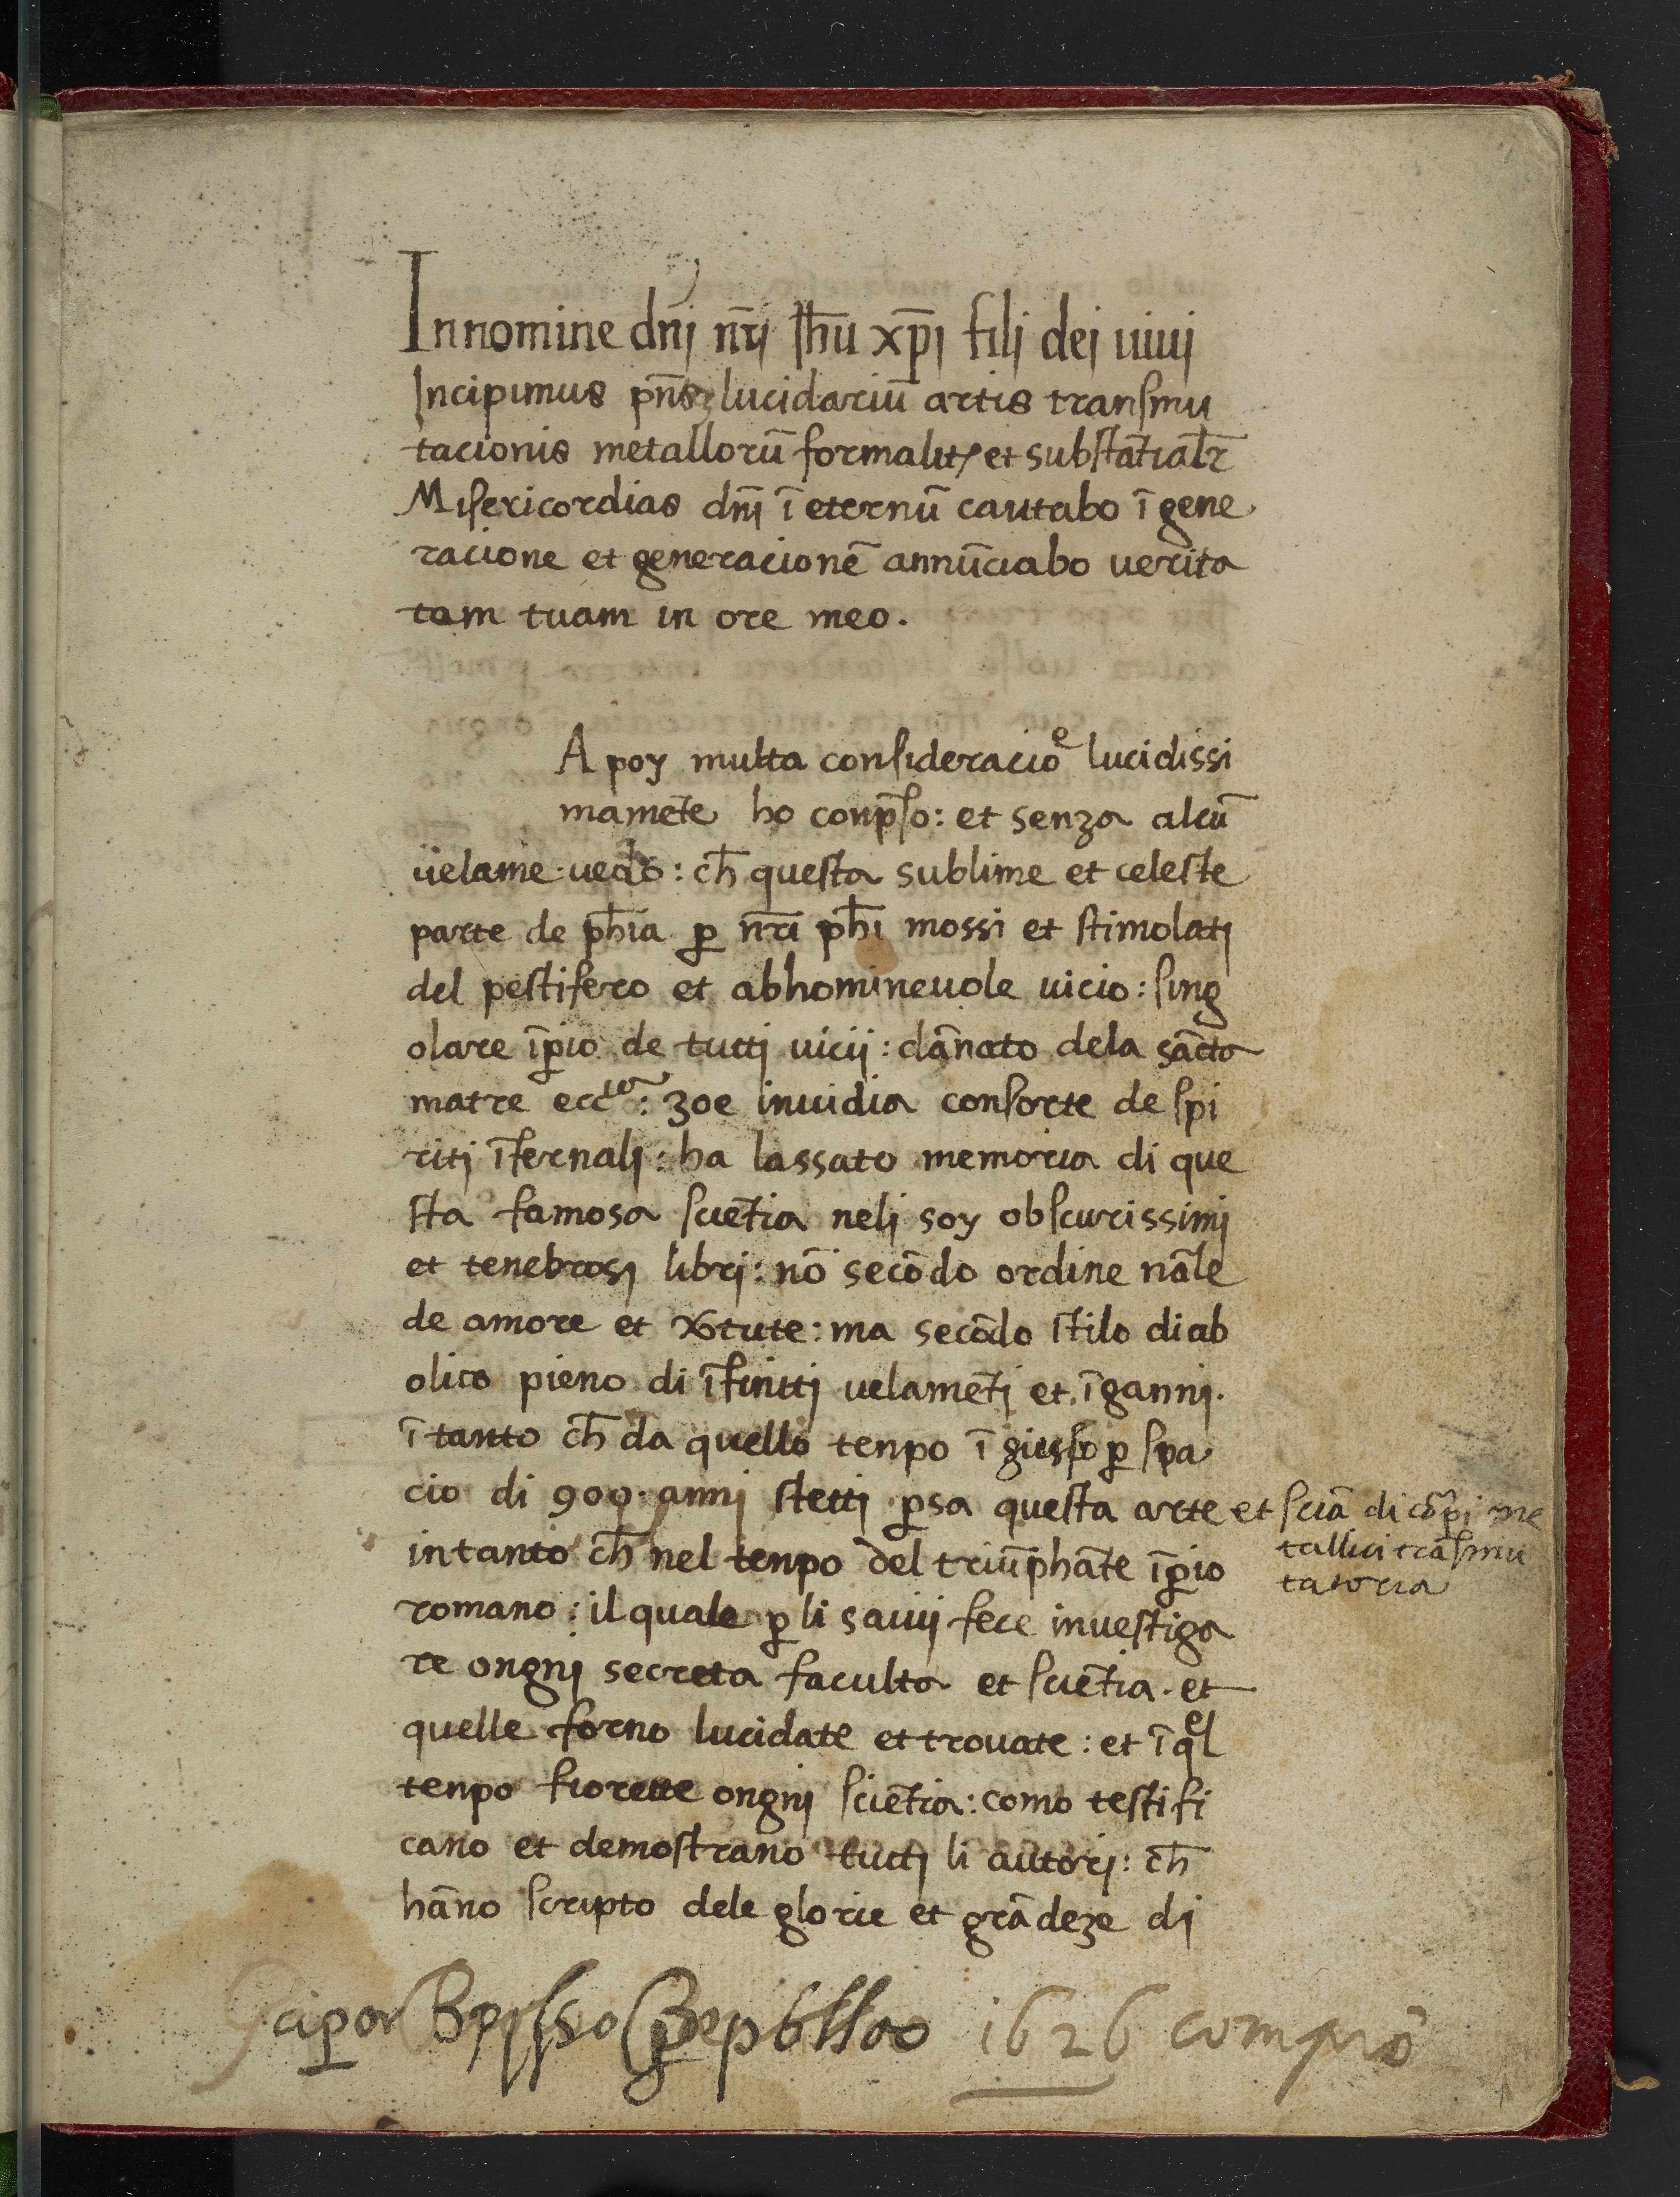 In nomine dnj̄ nr̄j Jhū xp̄i filj dej uiuj
Incipimus pn̄s lucidariū artis transmu
tacionis metallorū formalit et substātialr̄
Misericordias dnj̄ ī eternū cantabo ī gene
racione et generacionē annūciabo uerita
tam tuam in ore meo.
A poy multa consideracioe lucidissi
mamēte ho conp̄so: et senza alcū
uelame uedo: ch̄ questa sublime et celeste
parte de ph̄ia ꝑ nr̄i ph̄i mossi et stimolatj
del pestifero et abhomineuole uicio: sing
olare īꝑio de tuttj uicij: dānato dela sācta
matre ecc̄ia: zoe inuidia consorte de spi
ritj īfernalj: ha lassato memoria di que
sta famosa sciētia nelj soy obscurissimj
et tenebrosj librj: nō secōdo ordine nāle
de amore et xtute: ma secōdo stilo diab
olico pieno di īfinitj uelamētj et īgannj.
ī tanto ch̄ da quello tenpo ī giusso ꝑ spa
cio di 900 annj stettj ꝑsa questa arte et sciā di cōꝑi me
tallici trāsmu
tatoria
intanto ch̄ nel tenpo del triūphāte īꝑio
romano: il quale ꝑ li sauij fece inuestiga
re ongnj secreta faculta et sciētia. et
quelle forno lucidate et trouate: et ī qel
tenpo fiorette ongnj sciētia: como testifi
cano et demostrano tuttj li autorj: ch̄
hāno scripto dele glorie et grādeze dj
1626 comprò